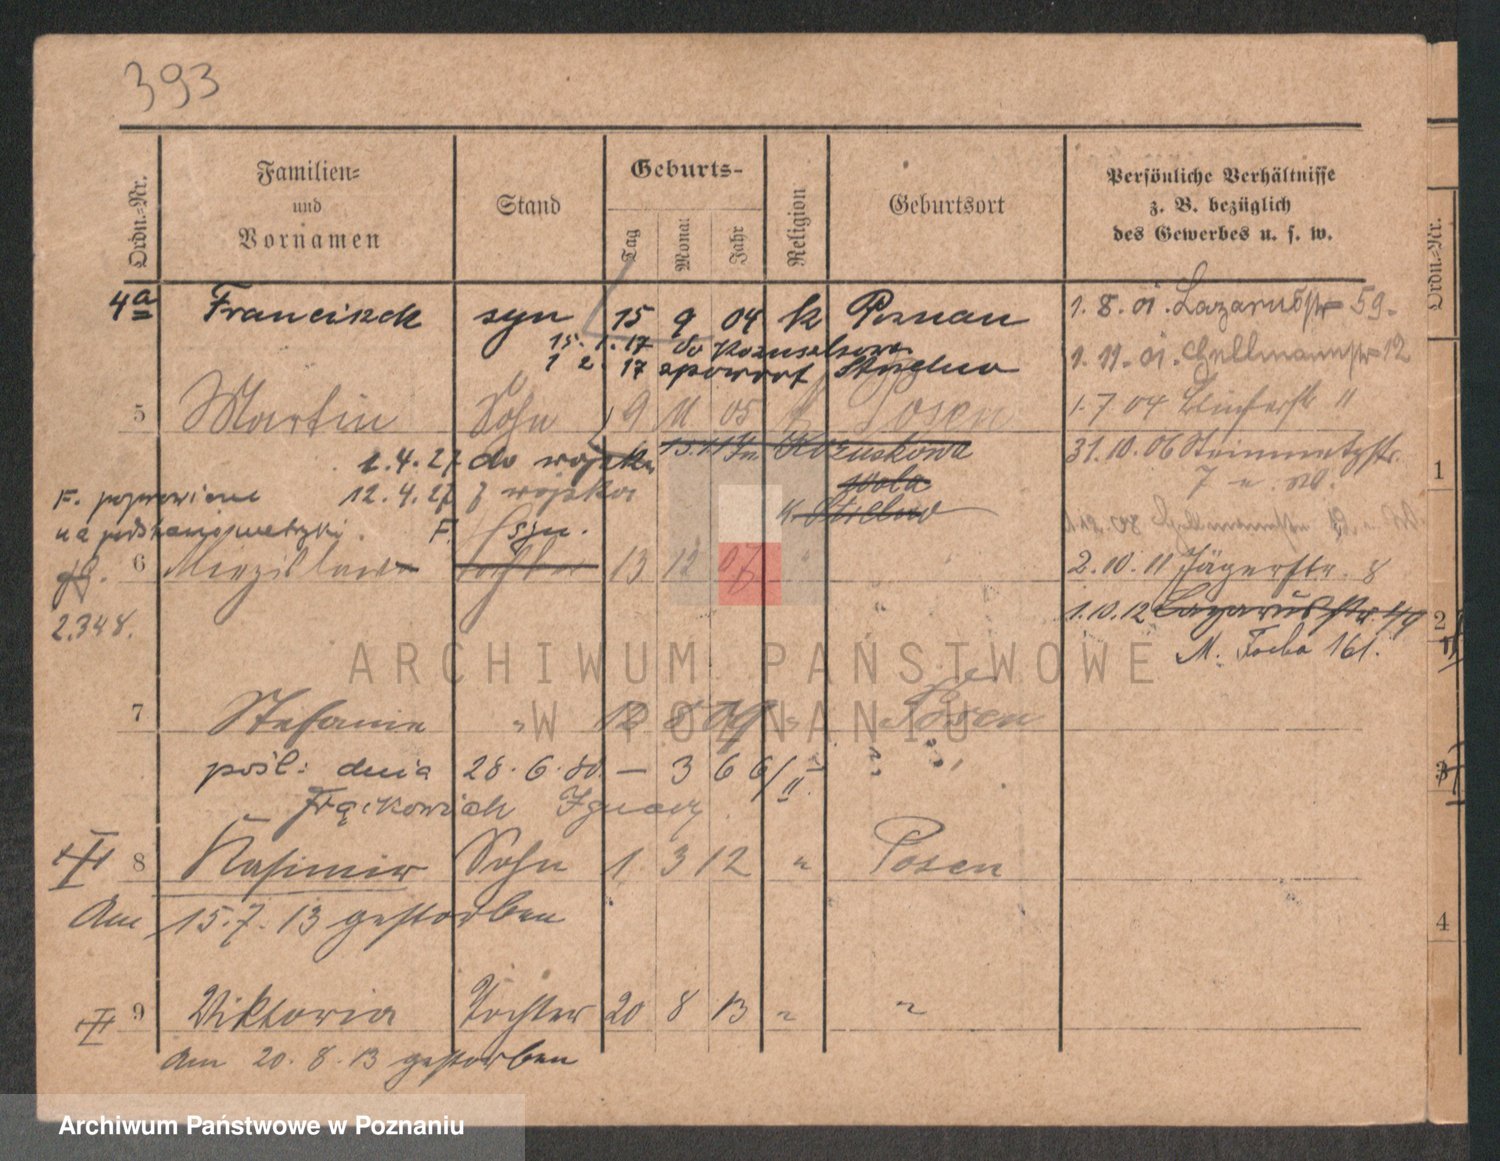 393
Ordn.-Nr.
Familien-
und
Vornamen
Stand
Geburts-
Tag
Monat
Jahr
Religion
Geburtsort
Persönliche Verhältnisse
z. B. bezüglich
des Gewerbes u. s. w.
Ordn.-Nr.
4a Franciszek syn 15 9 04 k Poznan
1.8.01. Lazarusstr 59.
15.1.17 do
1 2. 17 spowrot Strzelno
1.11.01. Gellmannstr 12
5 Martin Sohn 9 11 05 k Posen
1.7.04 "
1.4.27. do wojska
31.10.06 Steinmetzstr.
7
F. poprawione 12.4.27 z wojska
F. syn.
6 13 12 07 "
2.10.11 Jägerstr. 8
2.348.
1.10.12 Lazarusstr 49
M. Focha 161.
7 Stefanie " 12 8 09 " Posen
pośl: dnia 28.6.30. — 366/II
Frąckowiak Ignacy.
8 Kasimir Sohn 1. 3 12 " Posen
Am 15.7.13 gestorben
9 Viktoria Tochter 20 8 13 " "
Am 20.8.13 gestorben
1
2
3
4
ARCHIWUM PAŃSTWOWE
W POZNANIU
Archiwum Państwowe w Poznaniu